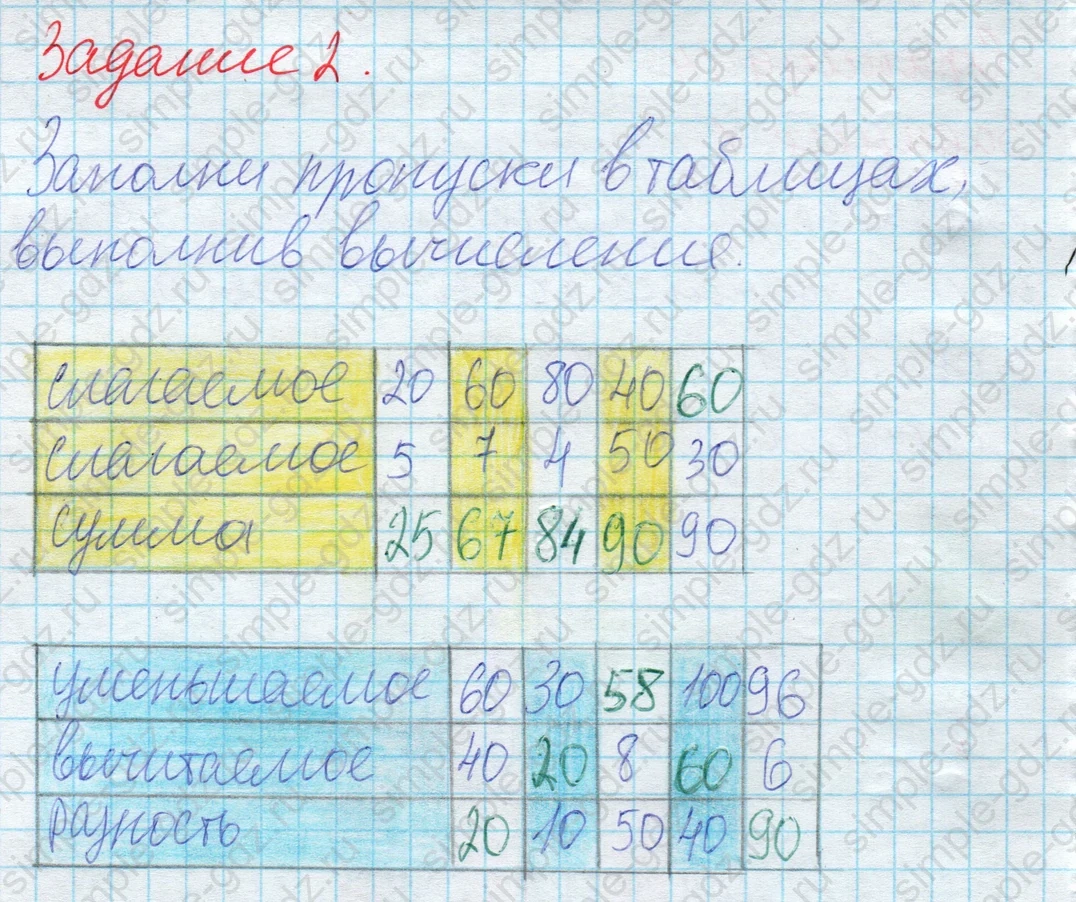 Задание 2.
Заполни пропуски в таблицах,
выполнив вычисление.
слагаемое 20 60 80 40 60
слагаемое 5 7 4 50 30
сумма 25 67 84 90 90
уменьшаемое 60 30 58 100 96
вычитаемое 40 20 8 60 6
разность 20 10 50 40 90
simple-gdz.ru